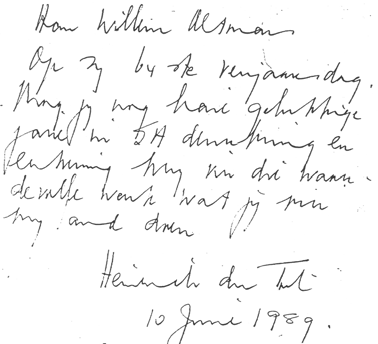 Aan Willem Altman
Op sy 64ste verjaarsdag.
Mag jy nog baie gelukkige
jare in SA deurbring en
my vir die waar-
devolle werk wat jy vir
my doen
Heinrich du Toit
10 Junie 1989.